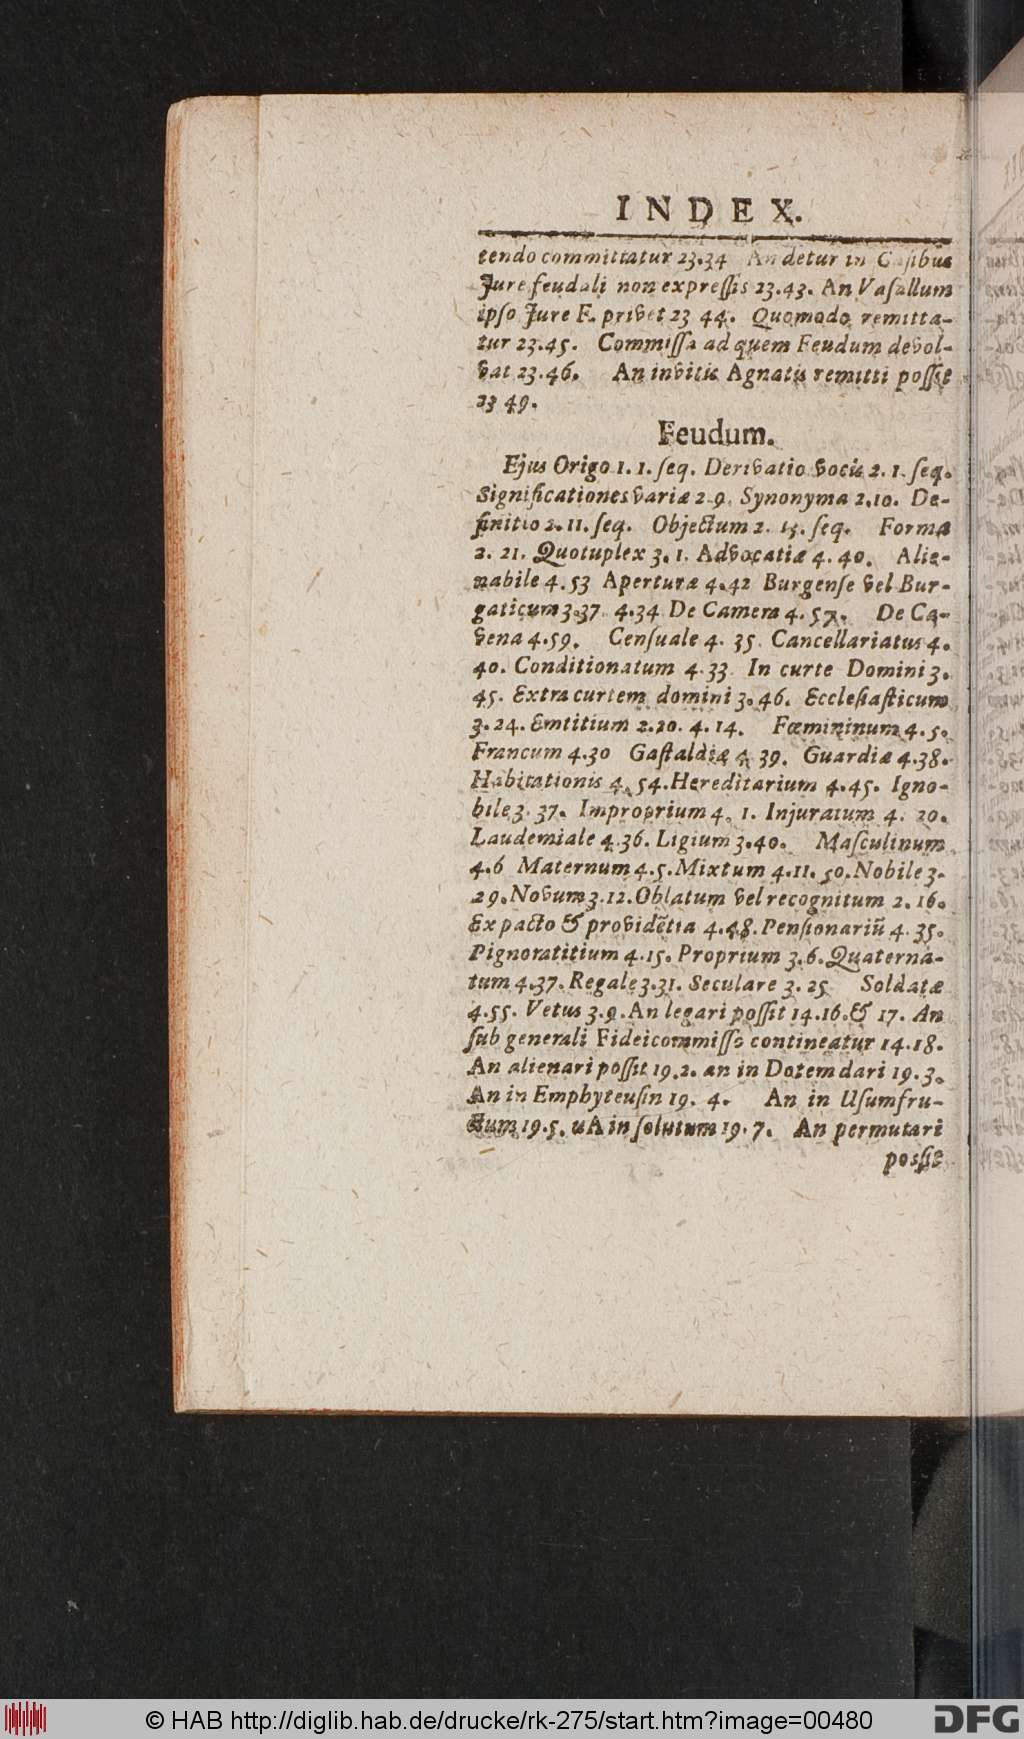 INDEX.
tendo committatur 23.34 An detur in Casibus
Jure feudali non expressis 23.43. An Vasallum
ipso Jure F. privet 23 44. Quomodo remitta-
tur 23.45. Commissa ad quem Feudum devol-
vat 23.46. An invitis Agnatis remitti possit
23 49.
Feudum.
Ejus Origo 1. 1. seq. Derivatio vocis 2. 1. seq.
Significationes variæ 2.9. Synonyma 2.10. De-
finitio 2. 11. seq. Objectum 2. 15. seq. Forma
2. 21. Quotuplex 3. 1. Advocatiæ 4. 40. Alie-
nabile 4. 53 Aperturæ 4.42 Burgense vel Bur-
gaticum 3.37. 4.34 De Camera 4. 57. De Ca-
vena 4.59. Censuale 4. 35. Cancellariatus 4.
40. Conditionatum 4.33. In curte Domini 3.
45. Extra curtem domini 3. 46. Ecclesiasticum
3. 24. Emtitium 2.20. 4. 14. Fœmininum 4. 5.
Francum 4.30 Gastaldiæ 4 39. Guardiæ 4.38.
Habitationis 4. 54. Hereditarium 4.45. Igno-
bile 3. 37. Improprium 4. 1. Injuratum 4. 20.
Laudemiale 4.36. Ligium 3.40. Masculinum
4.6 Maternum 4.5. Mixtum 4.11. 50. Nobile 3.
29. Novum 3.12. Oblatum vel recognitum 2. 16.
Ex pacto & providẽtia 4.48. Pensionariũ 4. 35.
Pignoratitium 4.15. Proprium 3.6. Quaterna-
tum 4.37. Regale 3.31. Seculare 3. 25 Soldatæ
4.55. Vetus 3.9. An legari possit 14.16. & 17. An
sub generali Fideicommisso contineatur 14.18.
An alienari possit 19.2. an in Dotem dari 19.3.
An in Emphyteusin 19. 4. An in Usumfru-
ctum 19.5. uA in solutum 19.7. An permutari
possit
© HAB http://diglib.hab.de/drucke/rk-275/start.htm?image=00480
DFG